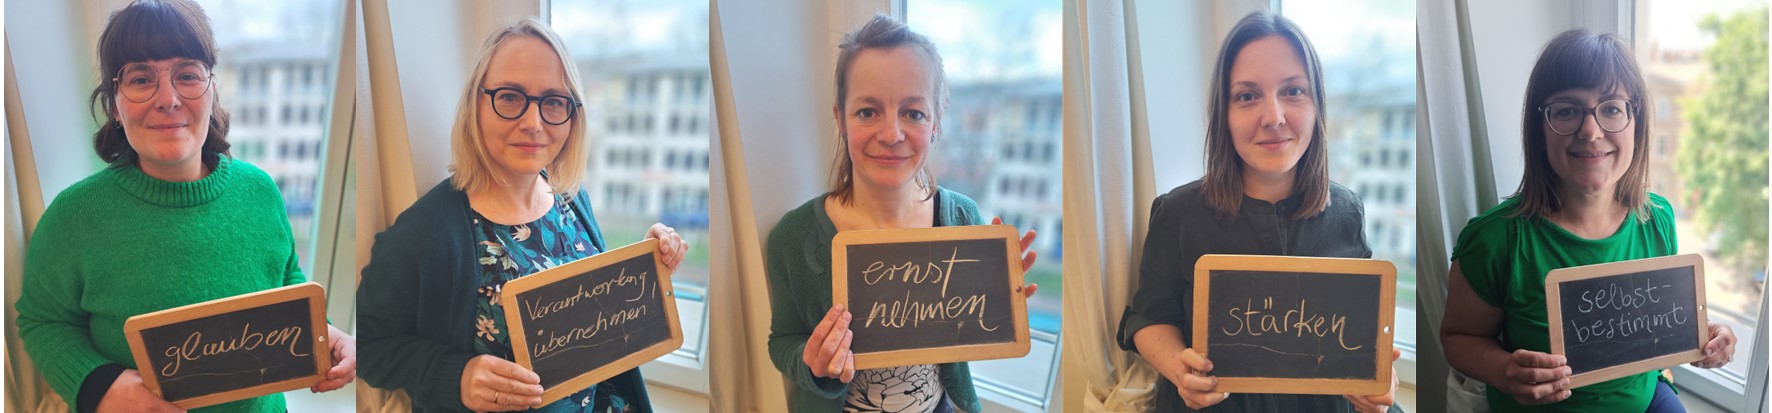 glauben
Verantwortung
übernehmen!
ernst
nehmen
stärken
selbst-
bestimmt